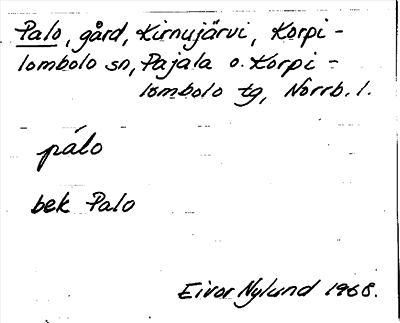 Palo, gård, Kirnujärvi, Korpi-
lombolo sn, Pajala o. Korpi-
lombolo tg, Norrb. l.
pálo
bek Palo
Eivor Nylund 1968.